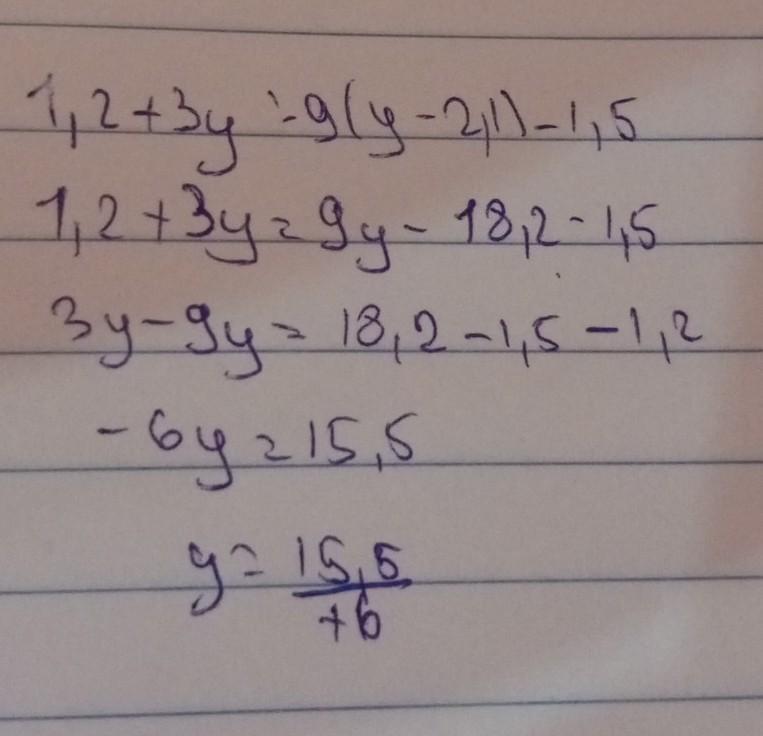 1,2+3y = 9(y-2,1)-1,5
1,2+3y = 9y - 18,2 - 1,5
3y-9y = 18,2 -1,5 -1,2
-6y = 15,5
y = 15,5
+6